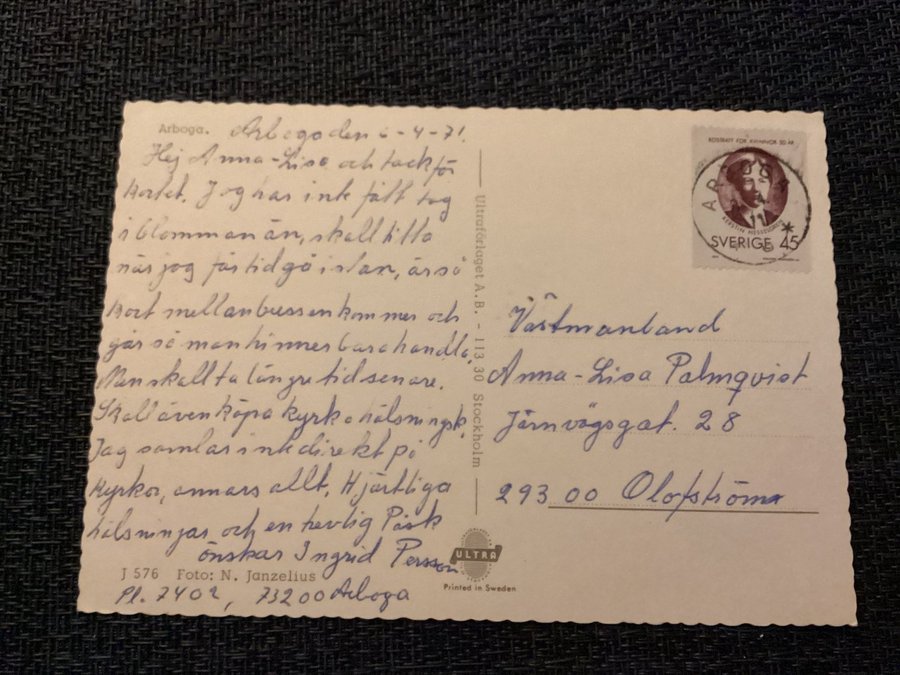 Arboga.
Arboga den -4-71.
Hej Anna-Lisa och tack för
kortet. Jag har ink fått tag
i blomman än, skall titta
när jag får tid gå i stan, är så
kort mellan bussen kommer och
går så man hinner bara handla,
Men skall ta längre tid senare.
Skall även köpa kyrko hälsningsk.
Jag samlar ink direkt på
kyrkor, annars allt. Hjärtliga
hälsningar och en trevlig Påsk
önskar Ingrid Persson
J 576 Foto: N. Janzelius
Pl. 7402, 73200 Arboga
Ultraförlaget A.B. - 113 30 Stockholm
ULTRA
Printed in Sweden
RÖSTRÄTT FÖR KVINNOR 50 ÅR
KERSTIN HESSELGREN
SVERIGE 45
Västmanland
Anna-Lisa Palmqvist
Järnvägsgat. 28
293 00 Olofström